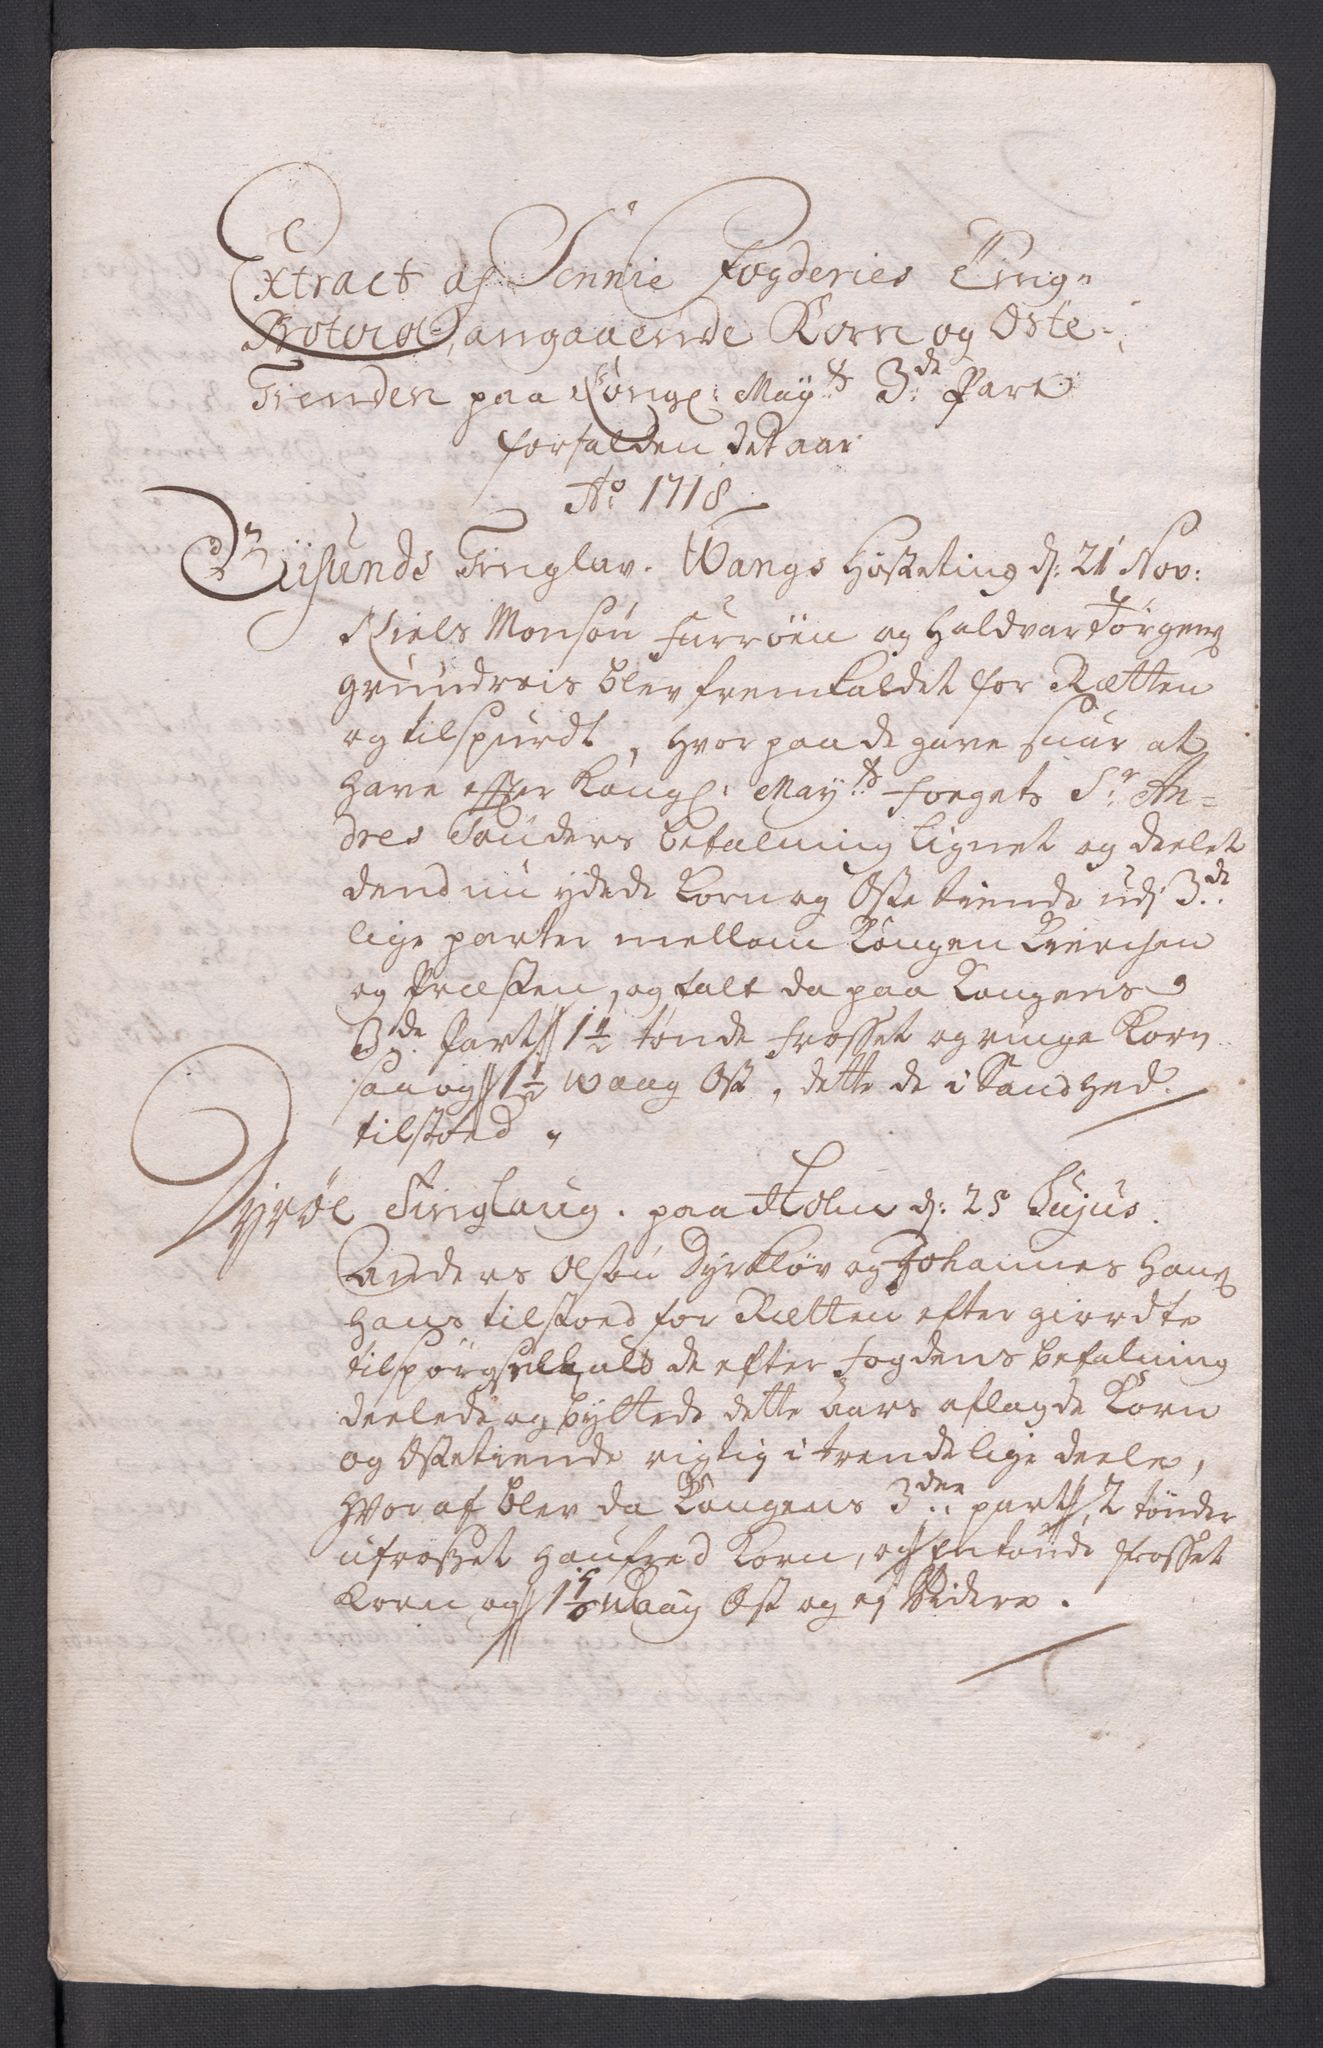 Extract af Sennie Fogderies Ting-
Protocol, angaaende Korn og Oste-
Tienden paa Kongl: Mayts 3de Part
forfalden det aar
Ao 1718
Giisunds Tinglav. Wangs Høsteting d: 21 Nov:
Niels Monsøn Furrøen og Haldvar Jørgens
grundreis blev fremkaldet for Rætten
og tilspurdt, hvorpaa de gave suar at
have efter Kongl: Mayts Fogets Sr An-
dres Tønders befalning lignet og deelet
dend nu ydede Korn og Oste tiende udj 3de
lige parter mellom Kongen Kierchen
og Præsten, og falt da paa Kongens
3de Part 1 1/2 tønde frosset og ringe Korn
saa og 1 1/2 Waag Ost, dette de i Sandhed
tilstoed
Gyrøe Tinglaug. paa Holm d: 25 hujus.
Anders Olsøn Dyrkløv og Johannes Hans
Hans tilstoed for Rætten efter giordte
tilspørgsell, at de efter fogdens befalning
deelede og byttede dette aars aflagde Korn
og Ostetiende rigtig i trende lige deele,
hvoraf blev da Kongens 3den part, 2 tønder
ufrosset haufred Korn, og En tønde frosset
Korn og 1 Waag Ost og ej videre.